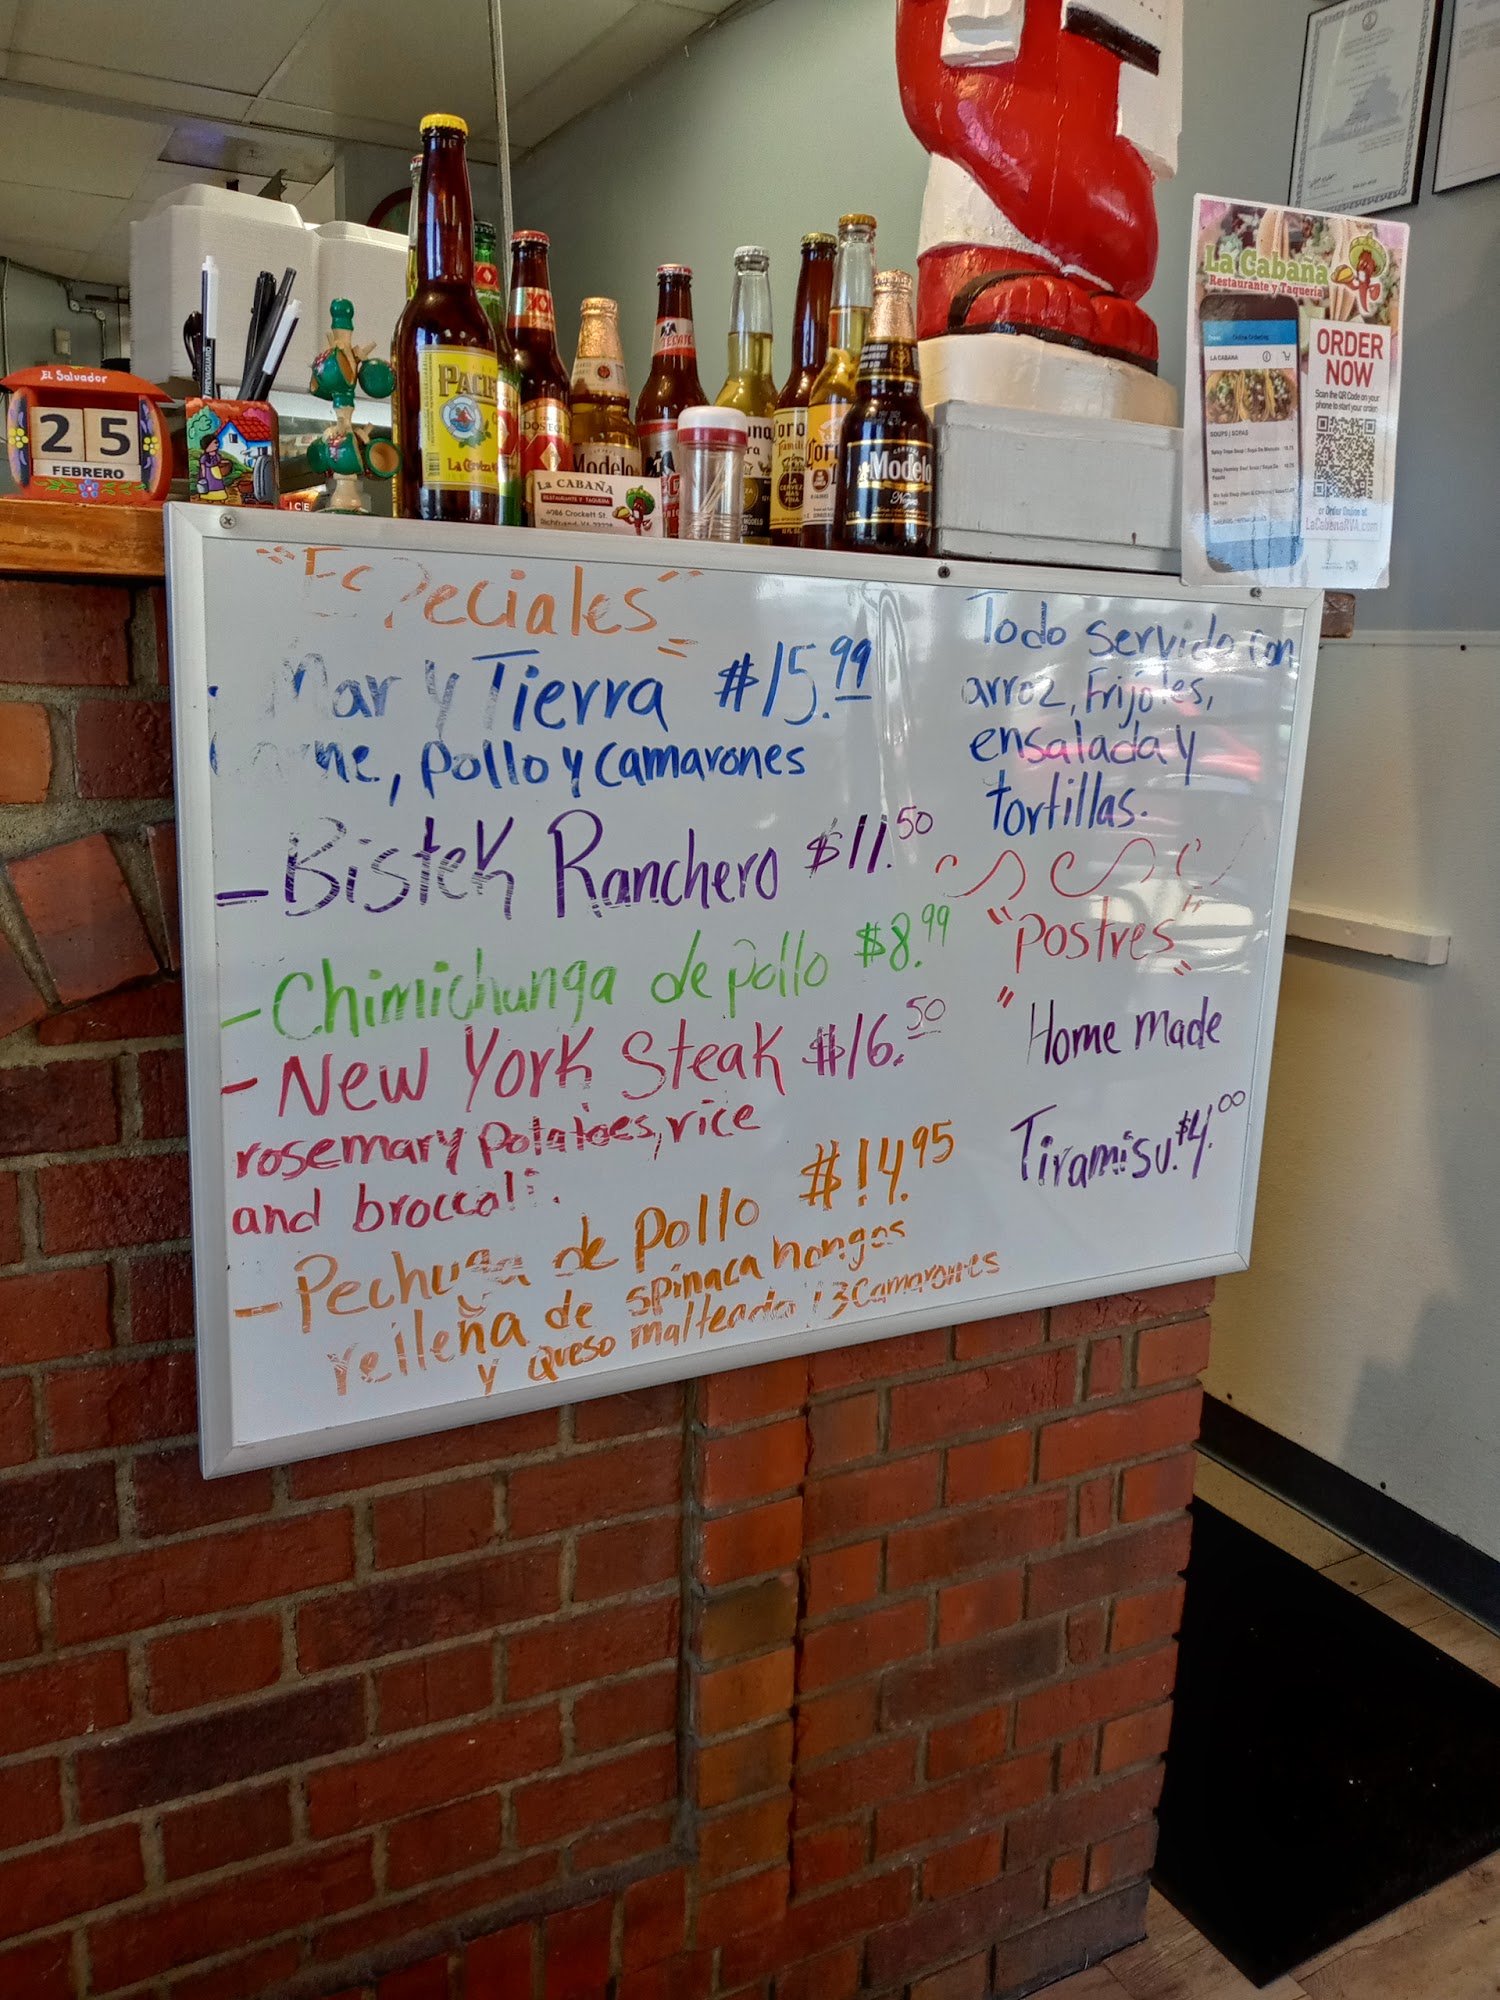 El Salvador
25
FEBRERO
PACIFI
La Cerveza
XX
DOS EQUIS
Modelo
TECATE
Corona
Familiar
Corona
Modelo
Negra
La CABAÑA
RESTAURANTE Y TAQUERIA
La Cabaña
Restaurante y Taqueria
Online Ordering
LA CABAÑA
SOUPS | SOPAS
ORDER
NOW
Scan the QR Code on your
phone to start your order
or Order Online at
LaCabanaRVA.com
"Especiales"
Mar y Tierra $15.99
Carne, pollo y camarones
- Bistek Ranchero $11.50
- Chimichunga de pollo $8.99
- New York Steak $16.50
rosemary potatoes, rice
and broccoli.
- Pechuga de pollo $14.95
relleña de spinaca hongos
y queso malteado y 3 Camarones
Todo servido con
arroz, Frijoles,
ensalada y
tortillas.
"Postres"
"Home made
Tiramisu. $4.00